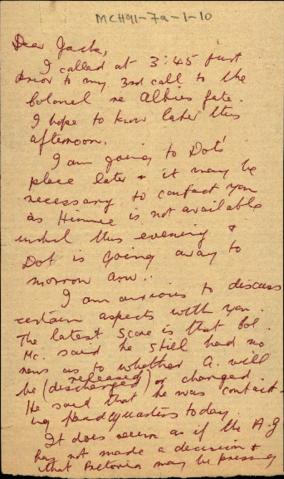 MCH91-7a-1-10
Dear Jack,
I called at 3:45 just
prior to my 3rd call to the
Colonel re Albies fate.
I hope to know later this
afternoon.
I am going to Dot's
place later & it may be
necessary to contact you
as Himie is not available
until this evening &
Dot is going away to
morrow am..
I am anxious to discuss
certain aspects with you.
The latest score is that Col.
Mc. said he still had no
news as to whether A. will
be (discharged) released or charged.
He said that he was contact-
ing headquarters today.
It does seem as if the A.G
has not made a decision &
that Pretoria may be pressing